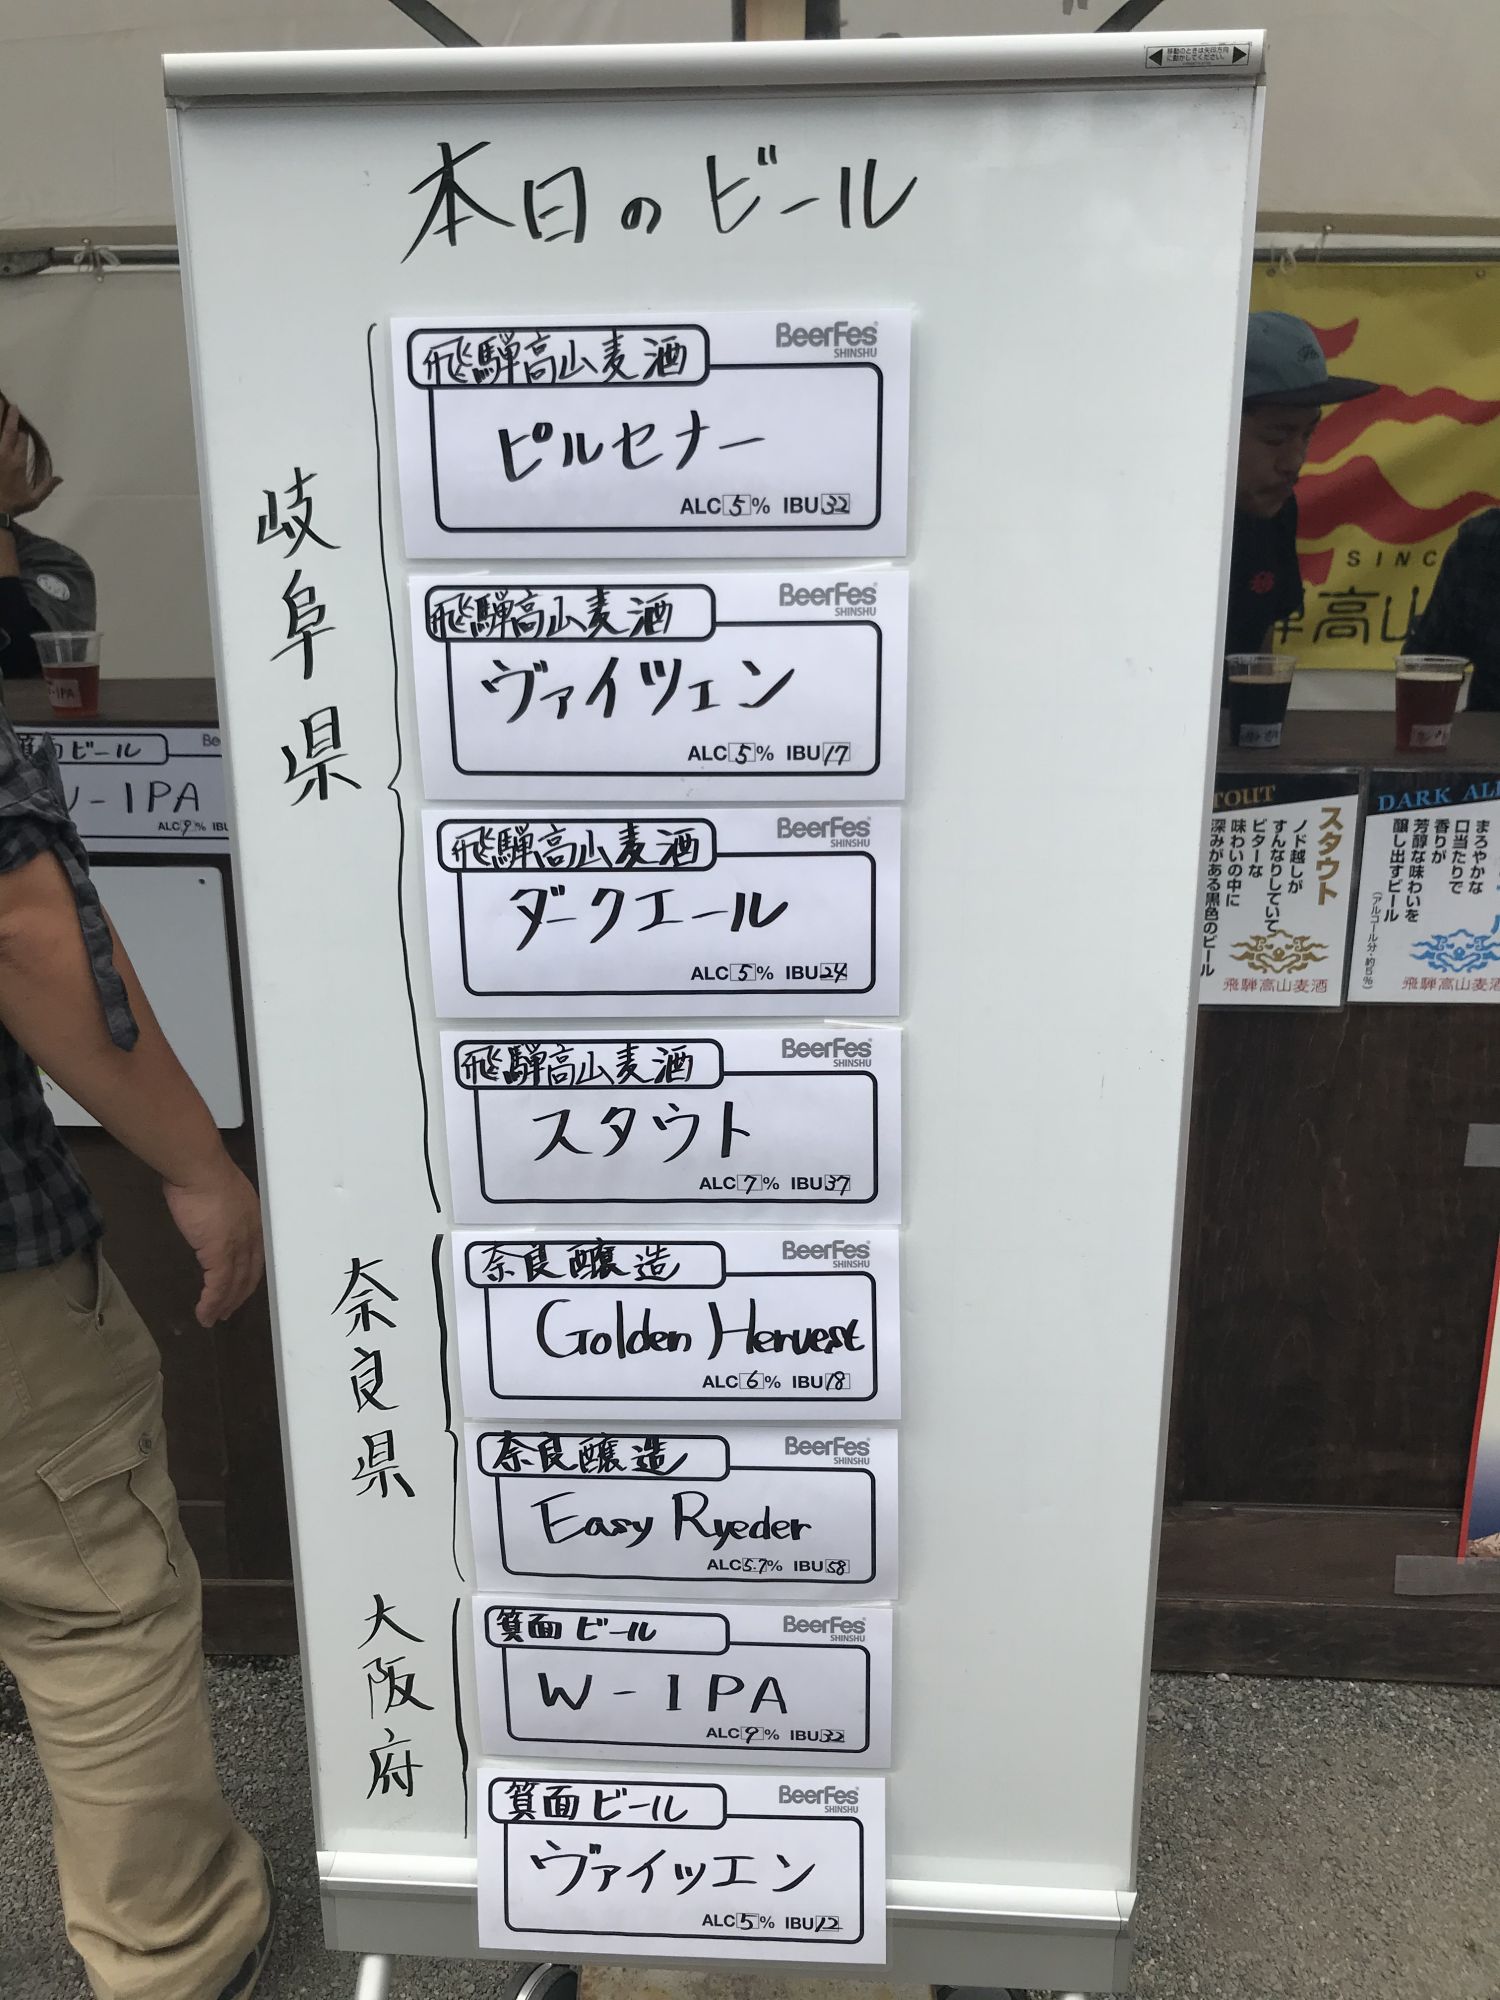 移動のときは矢印方向
に動かしてください。
本日のビール
岐阜県
飛騨高山麦酒
BeerFes
SHINSHU
ピルセナー
ALC 5 % IBU 32
飛騨高山麦酒
BeerFes
SHINSHU
ヴァイツェン
ALC 5 % IBU 17
飛騨高山麦酒
BeerFes
SHINSHU
ダークエール
ALC 5 % IBU 24
飛騨高山麦酒
BeerFes
SHINSHU
スタウト
ALC 7 % IBU 37
奈良県
奈良醸造
BeerFes
SHINSHU
Golden Hervest
ALC 6 % IBU 18
奈良醸造
BeerFes
SHINSHU
Easy Ryeder
ALC 5.7 % IBU 58
大阪府
箕面ビール
BeerFes
SHINSHU
W-IPA
ALC 9 % IBU 32
箕面ビール
BeerFes
SHINSHU
ヴァイツエン
ALC 5 % IBU 12
箕面ビール
Be
W-IPA
ALC 9 % IBU
SINC
高山
TOUT
スタウト
ノド越しが
すんなりしていて
ビターな
味わいの中に
深みがある黒色のビール
飛騨高山麦酒
DARK AL
まろやかな
口当たりで
香りが
芳醇な味わいを
醸し出すビール
(アルコール分・約5%)
飛騨高山麦酒